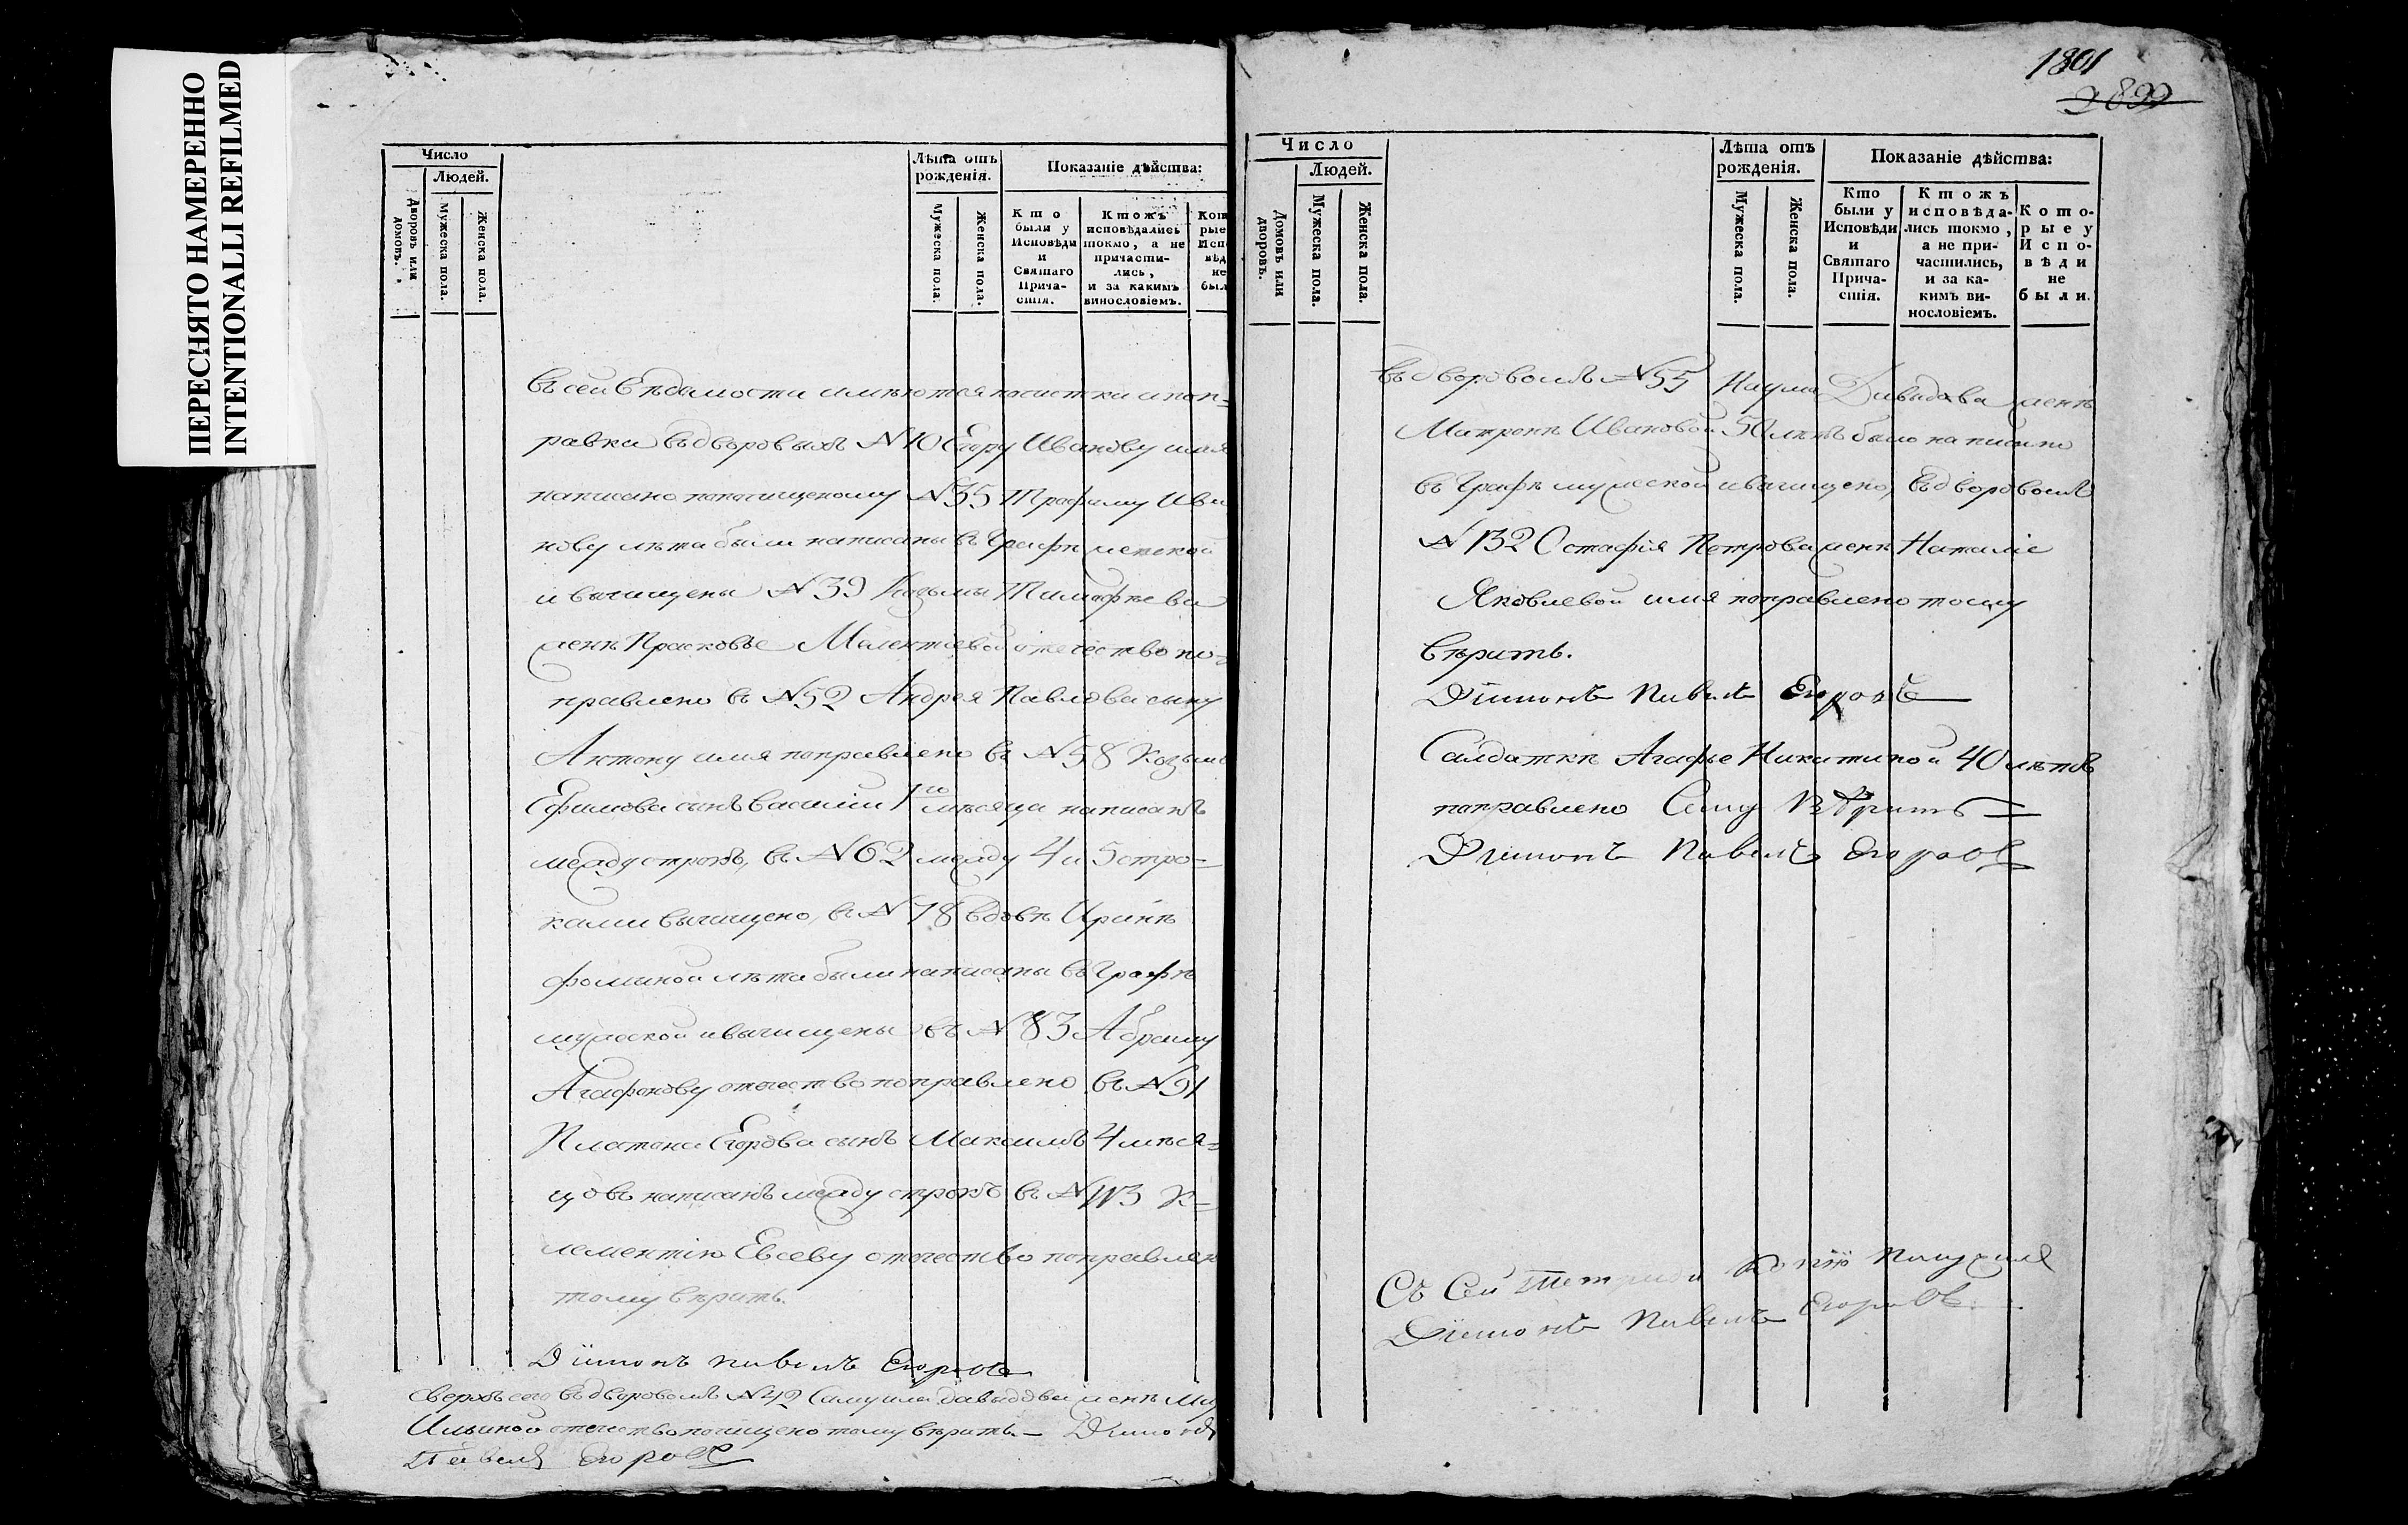 ПЕРЕСНЯТО НАМЕРЕННО
INTENTIONALLI REFILMED
Число
Людей.
Дворовъ или домовъ.
Мужеска пола.
Женска пола.
Лѣта отъ рожденія.
Мужеска пола.
Женска пола.
Показаніе дѣйства:
Кто были у Исповѣди и Святаго Причастія.
Ктожъ исповѣдались токмо, а не причастились, и за какимъ винословіемъ.
въ сей вѣдамости имѣются почистки и поп=
равки въ дворовыхъ №10 Егору Иванову имя
написано почищеному №35 Трофиму Ива
нову лѣта были написаны въ Графѣ женской
и вычищены №39 Козьмы Тимофѣева
женѣ Прасковье Малентьевой отечество по=
правлено въ №52 Андрея Павлова сыну
Антону имя поправлено въ №58 Козьмы
Ефимова сынъ Василии 1го мѣсяца написанъ
между строкъ, въ №62 между 4 и 5 стро=
ками вычищено, въ №78 вдовѣ Иринѣ
фоминой лѣта были написаны въ Графѣ
мужеской и вычищены въ №83 Абраму
Агафонову отечество поправлено въ №91
Платона Егорова сынъ Максимъ 4 мѣся=
цовъ написанъ между строкъ въ №113 К=
лементію Евсеву отечество поправлен
тому вѣрить.
Діиконъ павелъ Егоровъ
сверхъ сего въ дворовомъ №42 Самуила давыдова женѣ
Ильиной отечество почищено тому вѣрить.— Діиконъ
Павелъ Егоровъ
1801
2899
Число
Людей.
Домовъ или дворовъ.
Мужеска пола.
Женска пола.
Лѣта отъ рожденія.
Мужеска пола.
Женска пола.
Показаніе дѣйства:
Кто были у Исповѣди и Святаго Причастія.
Ктожъ исповѣдались токмо, а не причастились, и за какимъ винословіемъ.
Которые у Исповѣди не были.
въ дворовомъ №55 Наума Давыдова женѣ
Матронѣ Ивановой 50 лѣтъ было написано
въ Графѣ мужеской и вычищено, въ дворовомъ
№132 Остафія Петрова женѣ Наталіе
Яковлевой имя поправлено тому
вѣрить.
Діиконъ Павелъ Егоровъ
Салдаткѣ Агафье Никитиной 40 лѣтъ
поправлено Сему Вѣрить=
Діиконъ Павелъ Егоровъ
Съ Сей Тетради Копію Получилъ
Діиконъ Павелъ Егоровъ